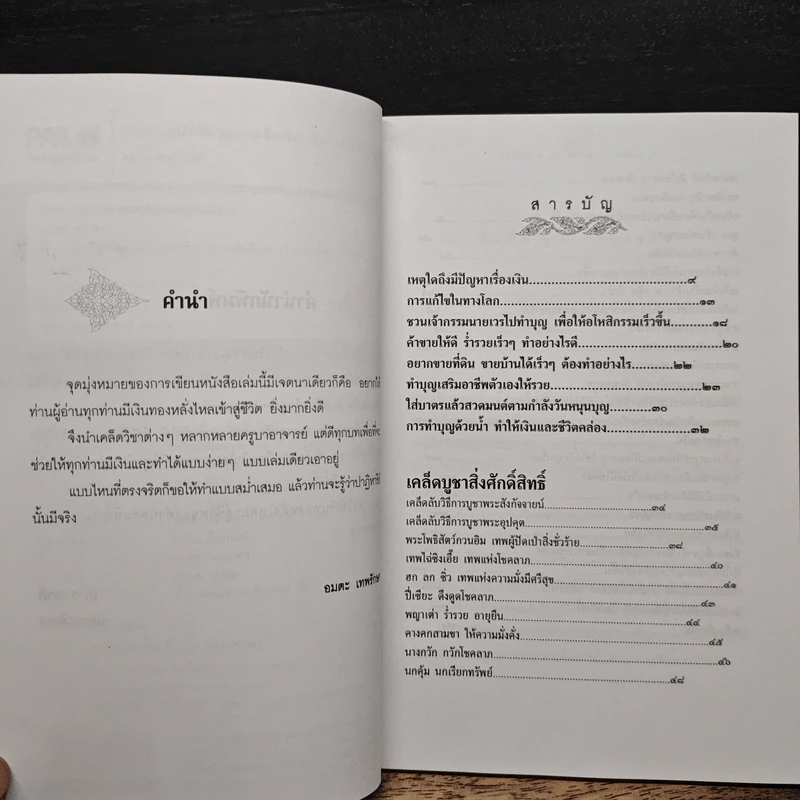 คำนำ
จุดมุ่งหมายของการเขียนหนังสือเล่มนี้มีเจตนาเดียวก็คือ
ท่านผู้อ่านทุกท่านมีเงินทองหลั่งไหลเข้าสู่ชีวิต ยิ่งมากยิ่งดี
จึงนำเคล็ดวิชาต่างๆ หลากหลายครูบาอาจารย์ แต่ดีทุกบทเพื่อที่จะ
ช่วยให้ทุกท่านมีเงินและทำได้แบบง่ายๆ แบบเล่มเดียวเอาอยู่
แบบไหนที่ตรงจริตก็ขอให้ทำแบบสม่ำเสมอ แล้วท่านจะรู้ว่าปาฏิหาริย์
นั้นมีจริง
อมตะ
สารบัญ
เหตุใดถึงมีปัญหาเรื่องเงิน....................................๙
การแก้ไขในทางโลก............................................๑๓
ชวนเจ้ากรรมนายเวรไปทำบุญ เพื่อให้อโหสิกรรมเร็วขึ้น...........๑๘
ค้าขายให้ดี ร่ำรวยเร็วๆ ทำอย่างไรดี..............................๒๐
อยากขายที่ดิน ขายบ้านได้เร็วๆ ต้องทำอย่างไร...........๒๒
ทำบุญเสริมอาชีพตัวเองให้รวย..............................๒๓
ใส่บาตรแล้วสวดมนต์ตามกำลังวันหนุนบุญ...........๓๐
การทำบุญด้วยน้ำ ทำให้เงินและชีวิตคล่อง...................๓๒
เคล็ดบูชาสิ่งศักดิ์สิทธิ์
เคล็ดลับวิธีการบูชาพระสังกัจจายน์...........................๓๔
เคล็ดลับวิธีการบูชาพระอุปคุต....................................๓๕
พระโพธิสัตว์กวนอิม เทพผู้ปิดเป่าสิ่งชั่วร้าย...............๓๘
เทพไฉ่ซิงเอี๊ย เทพแห่งโชคลาภ....................................๔๐
ฮก ลก ซิ่ว เทพแห่งความมั่งมีศรีสุข..............................๔๑
ปี่เซียะ ดึงดูดโชคลาภ.........................................๔๓
พญาเต่า ร่ำรวย อายุยืน.......................................๔๔
คางคกสามขา ให้ความมั่งคั่ง.......................................๔๕
นางกวัก กวักโชคลาภ.............................................๔๖
นกคุ้ม นกเรียกทรัพย์....................................๔๘